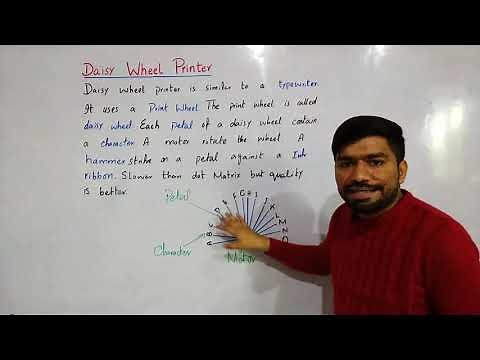 Daisy Wheel Printer
Daisy wheel printer is similar to a typewriter.
It uses a Print Wheel The print wheel is called
daisy wheel Each petal of a daisy wheel contain
a character A motor rotate the wheel A
hammer stoke on a petal against a Ink
ribbon. Slower than dot Matrix but quality
is better.
Petal
A B C D E F G H I J K L M N O
Character
Motor